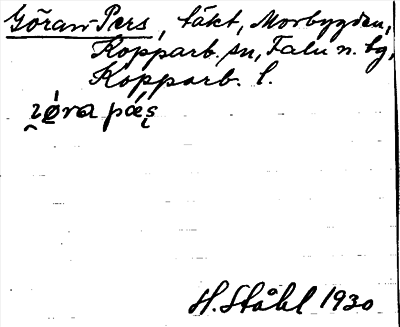 Göran-Pers, täkt, Morbygden,
Kopparb. sn, Falu n. tg,
Kopparb. l.
H. Ståhl 1930